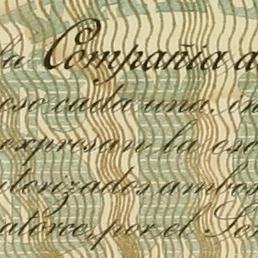 la Compañía d
eso cada una, en
expresan la esc
utorizados ambos
atorce, por el Se